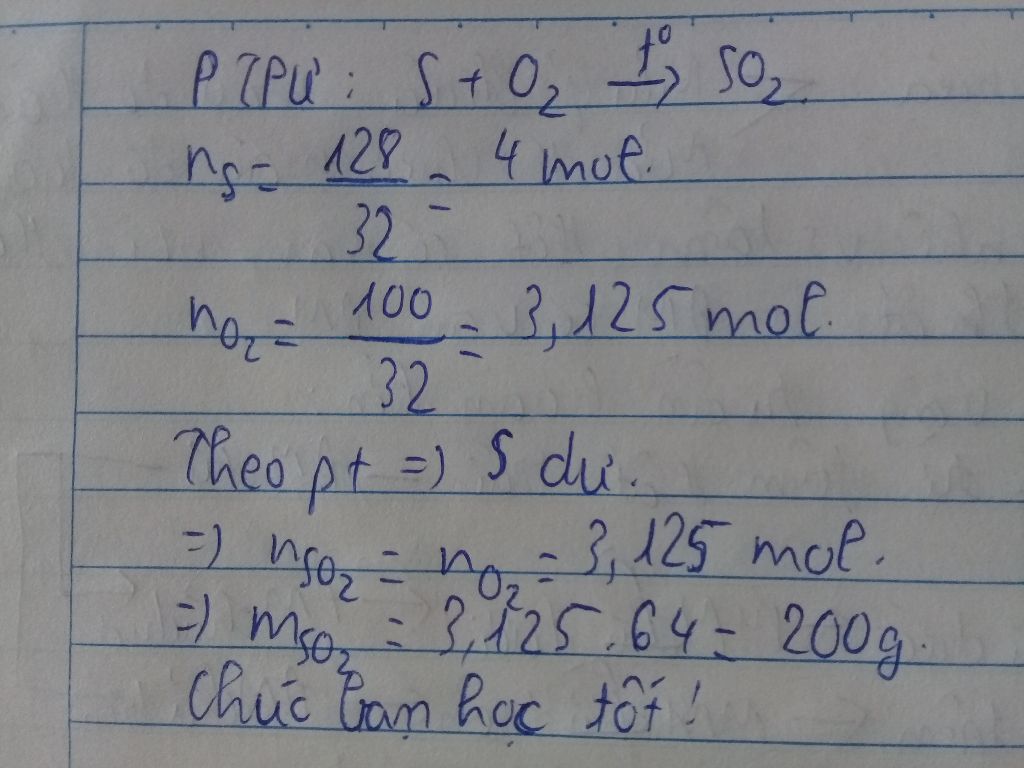 PTPƯ: S + O₂ —t°→ SO₂.
nS = 128/32 = 4 mol.
nO₂ = 100/32 = 3,125 mol.
Theo pt => S dư.
=> nSO₂ = nO₂ = 3,125 mol.
=> mSO₂ = 3,125.64 = 200g.
Chúc bạn học tốt!